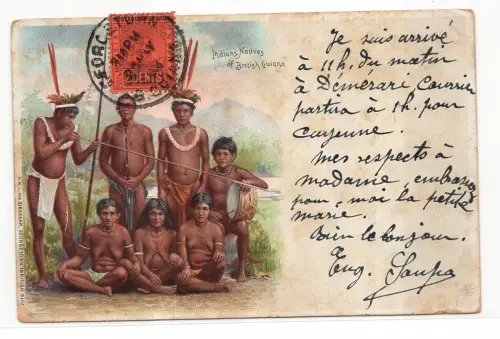 Indians, Natives
of British Guiana
2 CENTS
Je suis arrivé
à 11h. du matin
à Démérare, Courrier
partira à 1h. pour
Cayenne.
Mes respects à
madame, embrassez
pour moi la petite
Marie.
Bien le bonjour.
Eug.